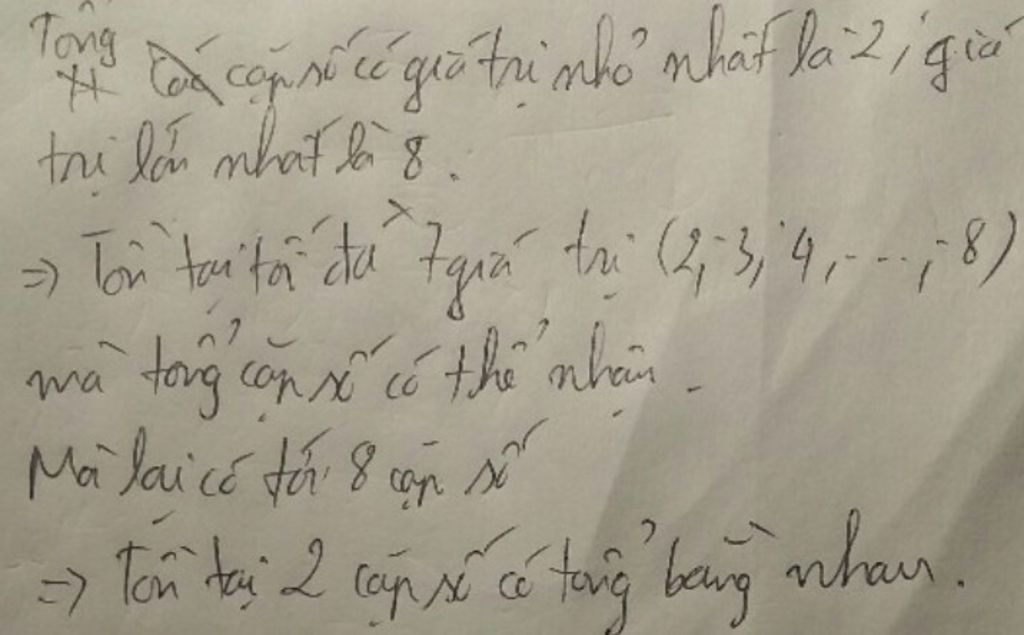 Tổng cặp số có giá trị nhỏ nhất là 2, giá
trị lớn nhất là 8.
=> Tồn tại tối đa 7 giá trị (2, 3, 4, ..., 8)
mà tổng cặp số có thể nhận.
Mà lại có tới 8 cặp số
=> Tồn tại 2 cặp số có tổng bằng nhau.